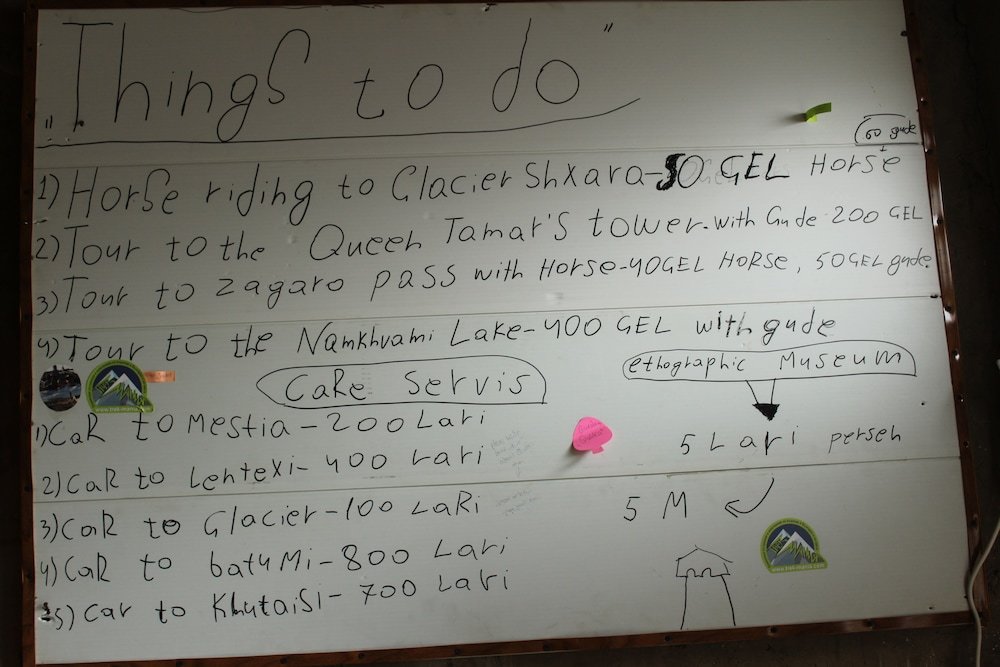 „Things to do"
60 gude
1) Horse riding to Glacier Shxara-50 GEL Horse
2) Tour to the Queen Tamar's tower. with Gude 200 GEL
3) Tour to zagaro pass with Horse-40GEL HORSE, 50GEL gude.
4) Tour to the Namkhvami Lake-400 GEL with gude
CaRe Servis
ethographic Museum
1) CaR to Mestia-200 Lari
5 Lari perseh
2) CaR to Lentexi-400 Lari
3) CaR to Glacier-100 LaRi
5 M
4) CaR to batuMi-800 Lari
5) Car to KhutaiSi-700 Lari